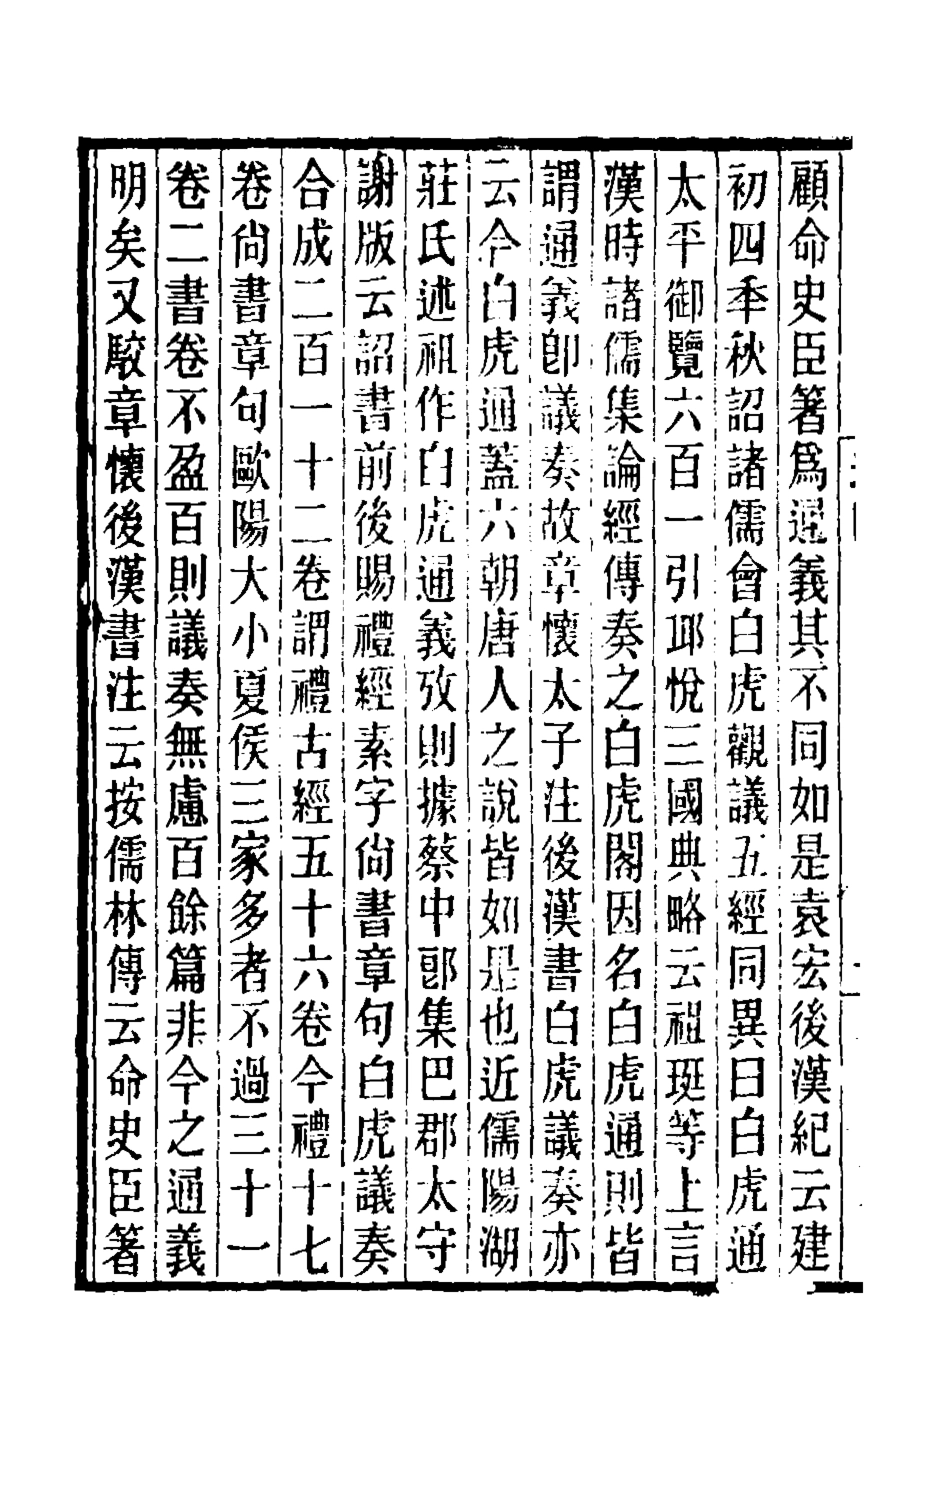 顧命史臣箸爲通義其不同如是袁宏後漢紀云建
初四年秋詔諸儒會白虎觀議五經同異曰白虎通
太平御覽六百一引邱悅三國典略云祖珽等上言
漢時諸儒集論經傳奏之白虎閣因名白虎通則皆
謂通義卽議奏故章懷太子注後漢書白虎議奏亦
云今白虎通蓋六朝唐人之說皆如是也近儒陽湖
莊氏述祖作白虎通義攷則據蔡中郎集巴郡太守
謝版云詔書前後賜禮經素字尙書章句白虎議奏
合成二百一十二卷謂禮古經五十六卷今禮十七
卷尙書章句歐陽大小夏侯三家多者不過三十一
卷二書卷不盈百則議奏無慮百餘篇非今之通義
明矣又駮章懷後漢書注云按儒林傳云命史臣箸